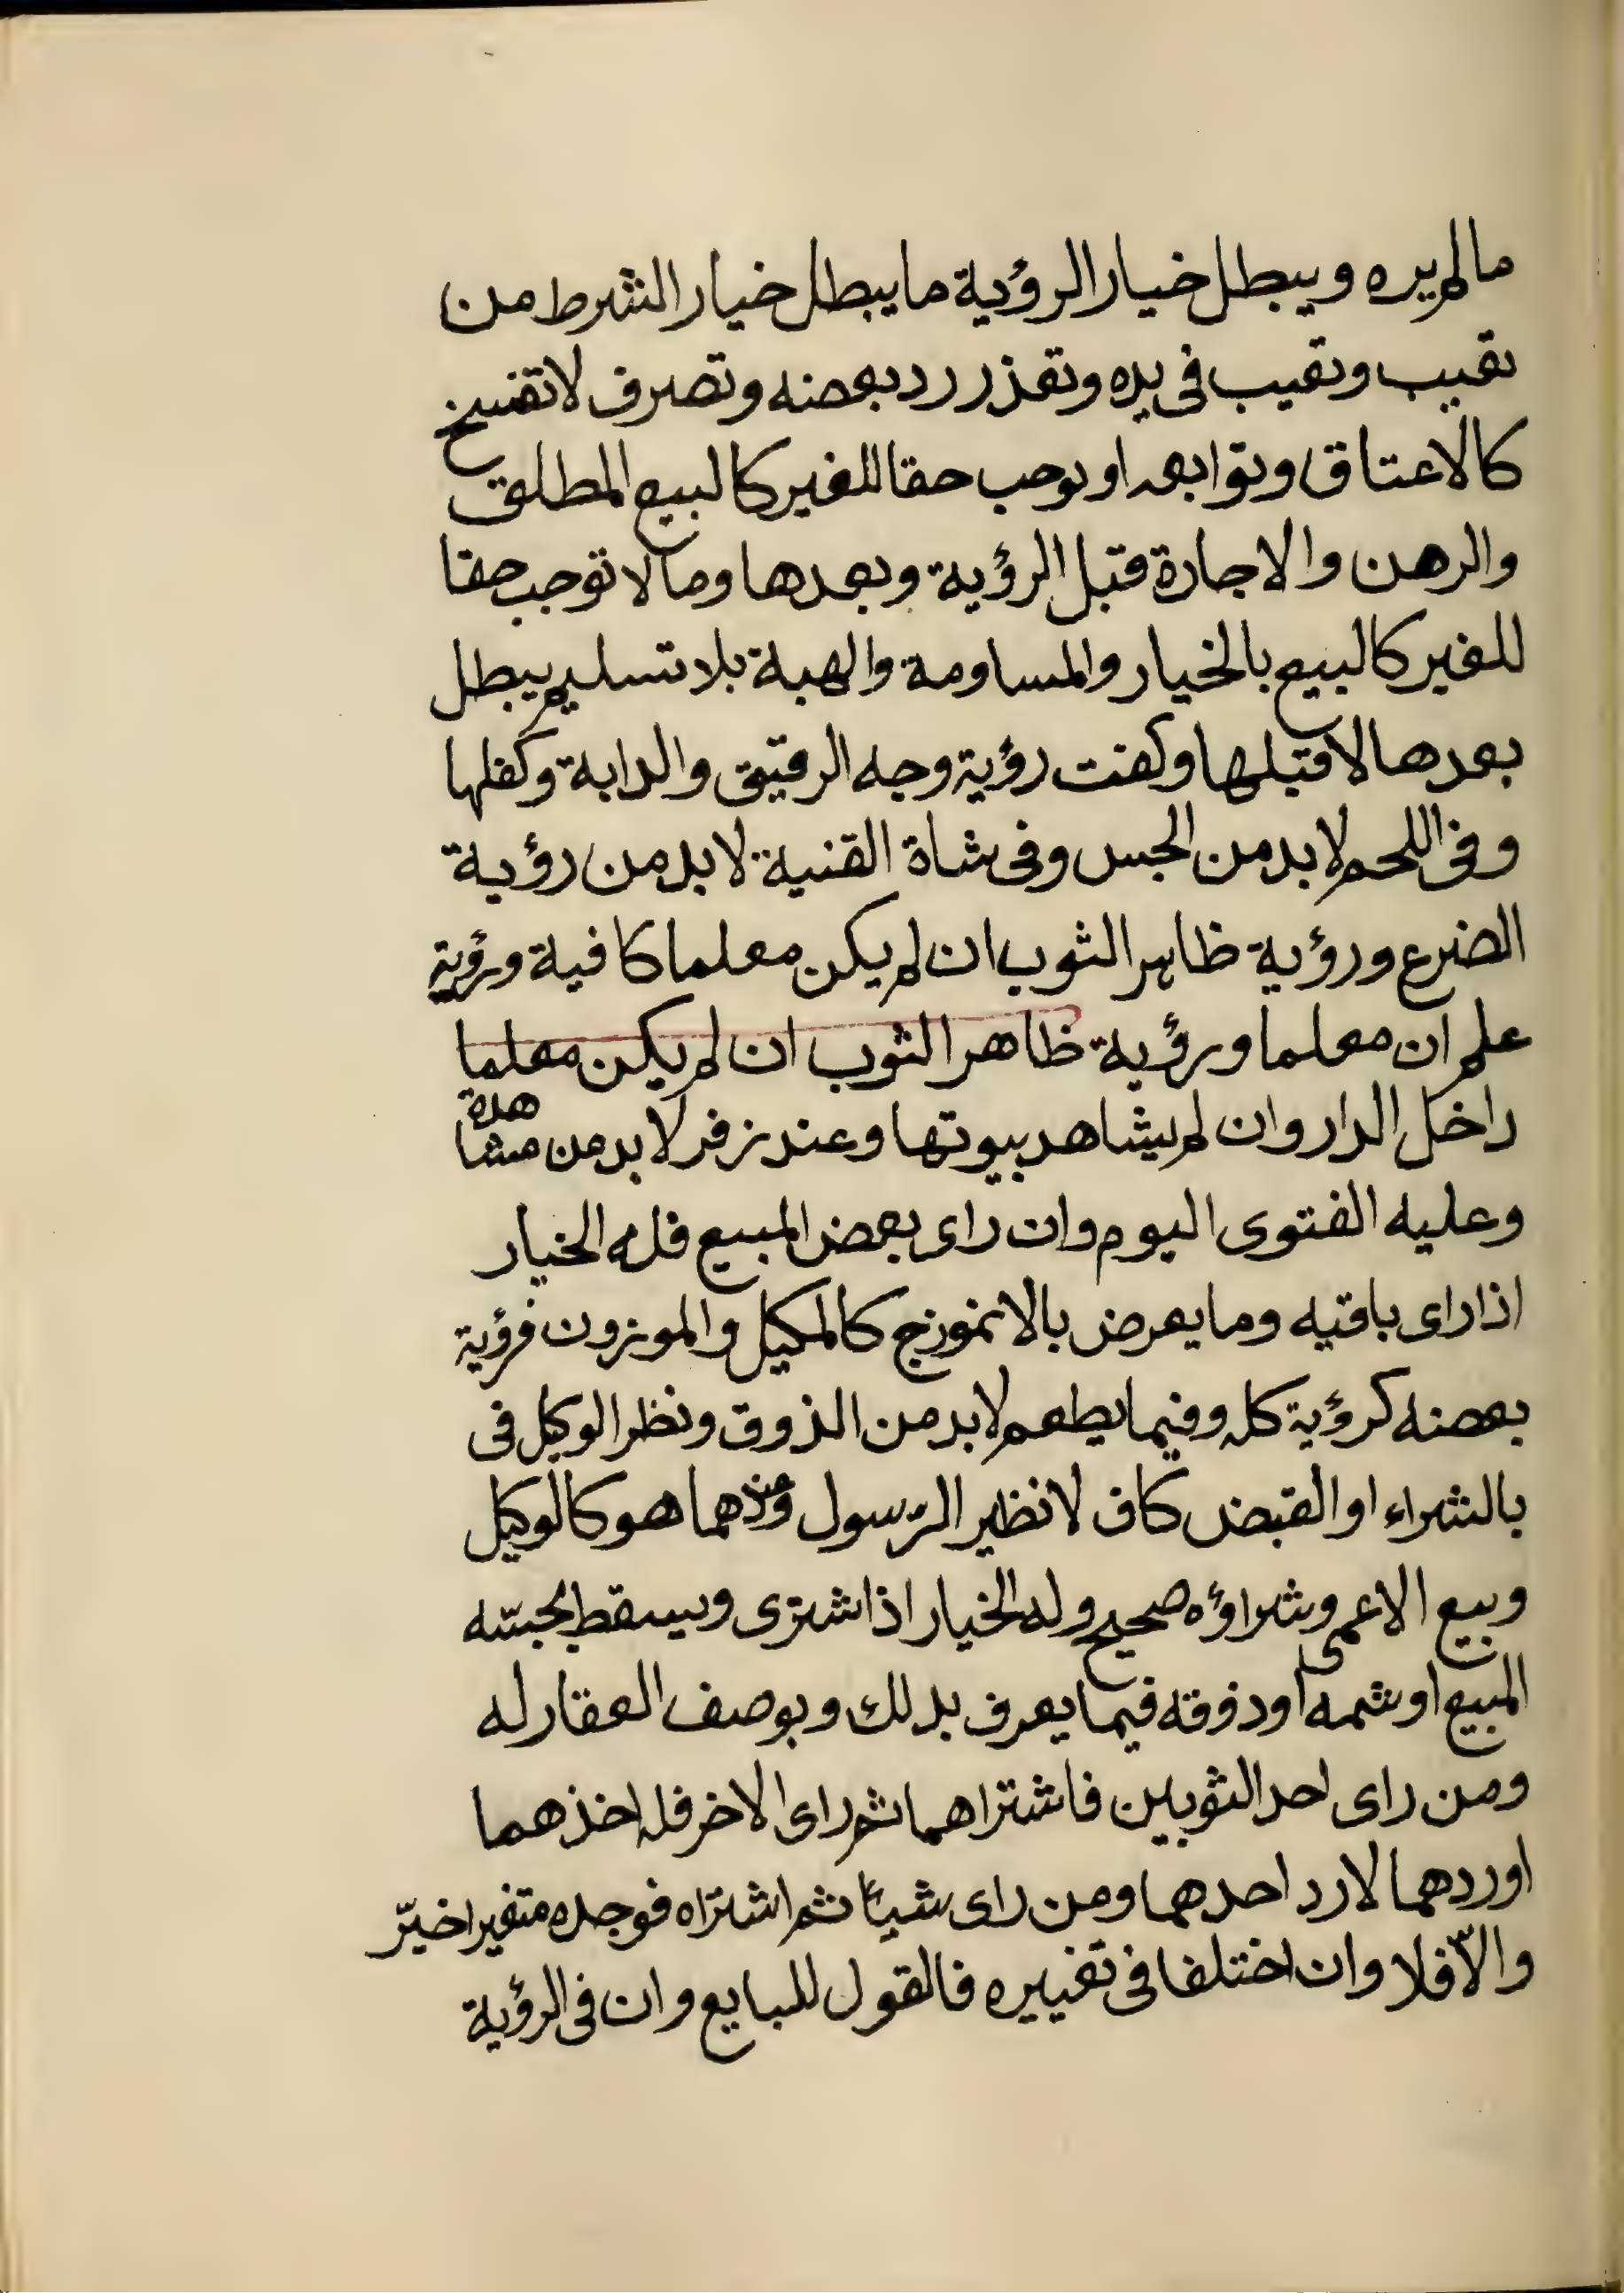 مالم يره ويبطل خيار الرؤية ما يبطل خيار الشرط من
تعيب وتعيب في يده وتعذر رد بعضه وتصرف لا تفسخ
كالاعتاق وتوابعه او يوجب حقا للغير كالبيع المطلق
والرهن والاجارة قبل الرؤية وبعدها وما لا توجب حقا
للغير كالبيع بالخيار والمساومة والهبة بلا تسليم يبطل
بعدها لا قبلها وكفت رؤية وجه الرقيق والدابة وكفلها
وفي اللحم لا بد من الجس وفي شاة القنية لا بد من رؤية
الضرع ورؤية ظاهر الثوب ان لم يكن معلما كافية ورؤية
علم ان معلما ورؤية ظاهر الثوب ان لم يكن معلما
داخل الدار وان لم يشاهد بيوتها وعند زفر لا بد من مشاهدة
وعليه الفتوى اليوم وان راى بعض المبيع فله الخيار
اذا راى باقيه وما يعرض بالانموزج كالمكيل والموزون فرؤية
بعضه كرؤية كله وفيما يطعم لا بد من الذوق ونظر الوكيل في
بالشراء او القبض كاف لا نظير الرسول وعندهما هو كالوكيل
وبيع الاعمى وشراؤه صحيح وله الخيار اذا شترى ويسقط بجسّه
المبيع او شمه او دذوقه فيما يعرف بدلك وبوصف العقار له
ومن راى احد الثوبين فاشتراهما ثم راى الاخر فله اخذهما
او ردهما لا رد احدهما ومن راى شيأ ثم اشتراه فوجده متغيرا خيّر
والّا فلا وان اختلفا في تغييره فالقول للبايع وان في الرؤية